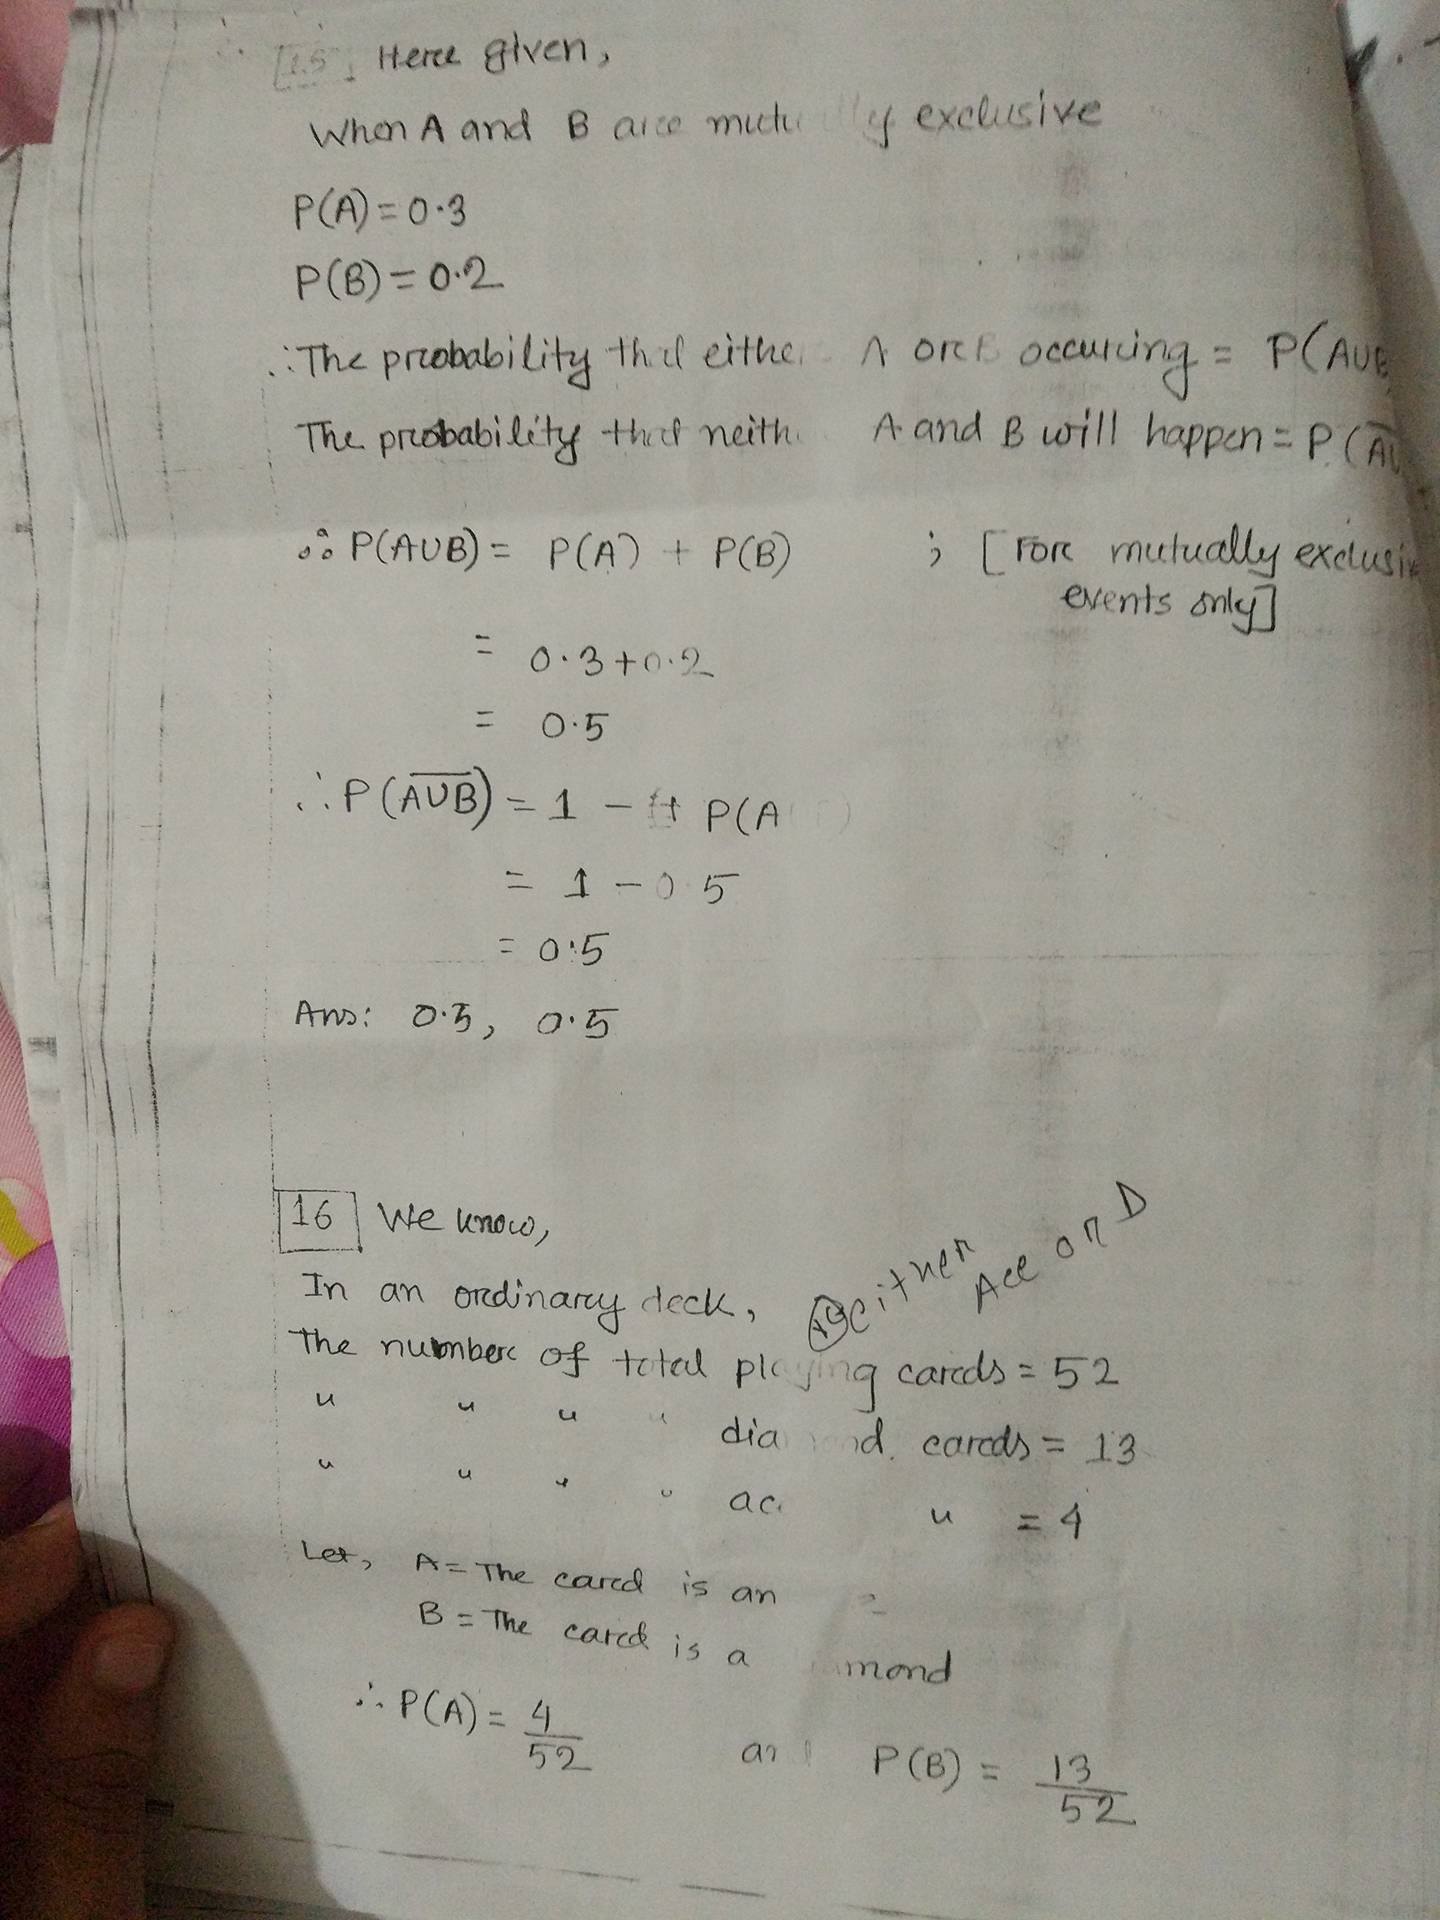 [15] Here given,
When A and B are mutually exclusive
P(A) = 0.3
P(B) = 0.2
∴ The probability that either A or B occuring = P(AUB
The probability that neith A and B will happen = P(AU
∴ P(AUB) = P(A) + P(B) ; [For mutually exclusi
events only]
= 0.3+0.2
= 0.5
∴ P(A̅U̅B̅) = 1 - P(A
= 1 - 0.5
= 0.5
Ans: 0.5, 0.5
16 We know,
either Ace or D
In an ordinary deck,
The number of total playing cards = 52
" " " " diamond cards = 13
" " " " ac " = 4
Let, A = The card is an
B = The card is a mond
∴ P(A) = 4/52 and P(B) = 13/52